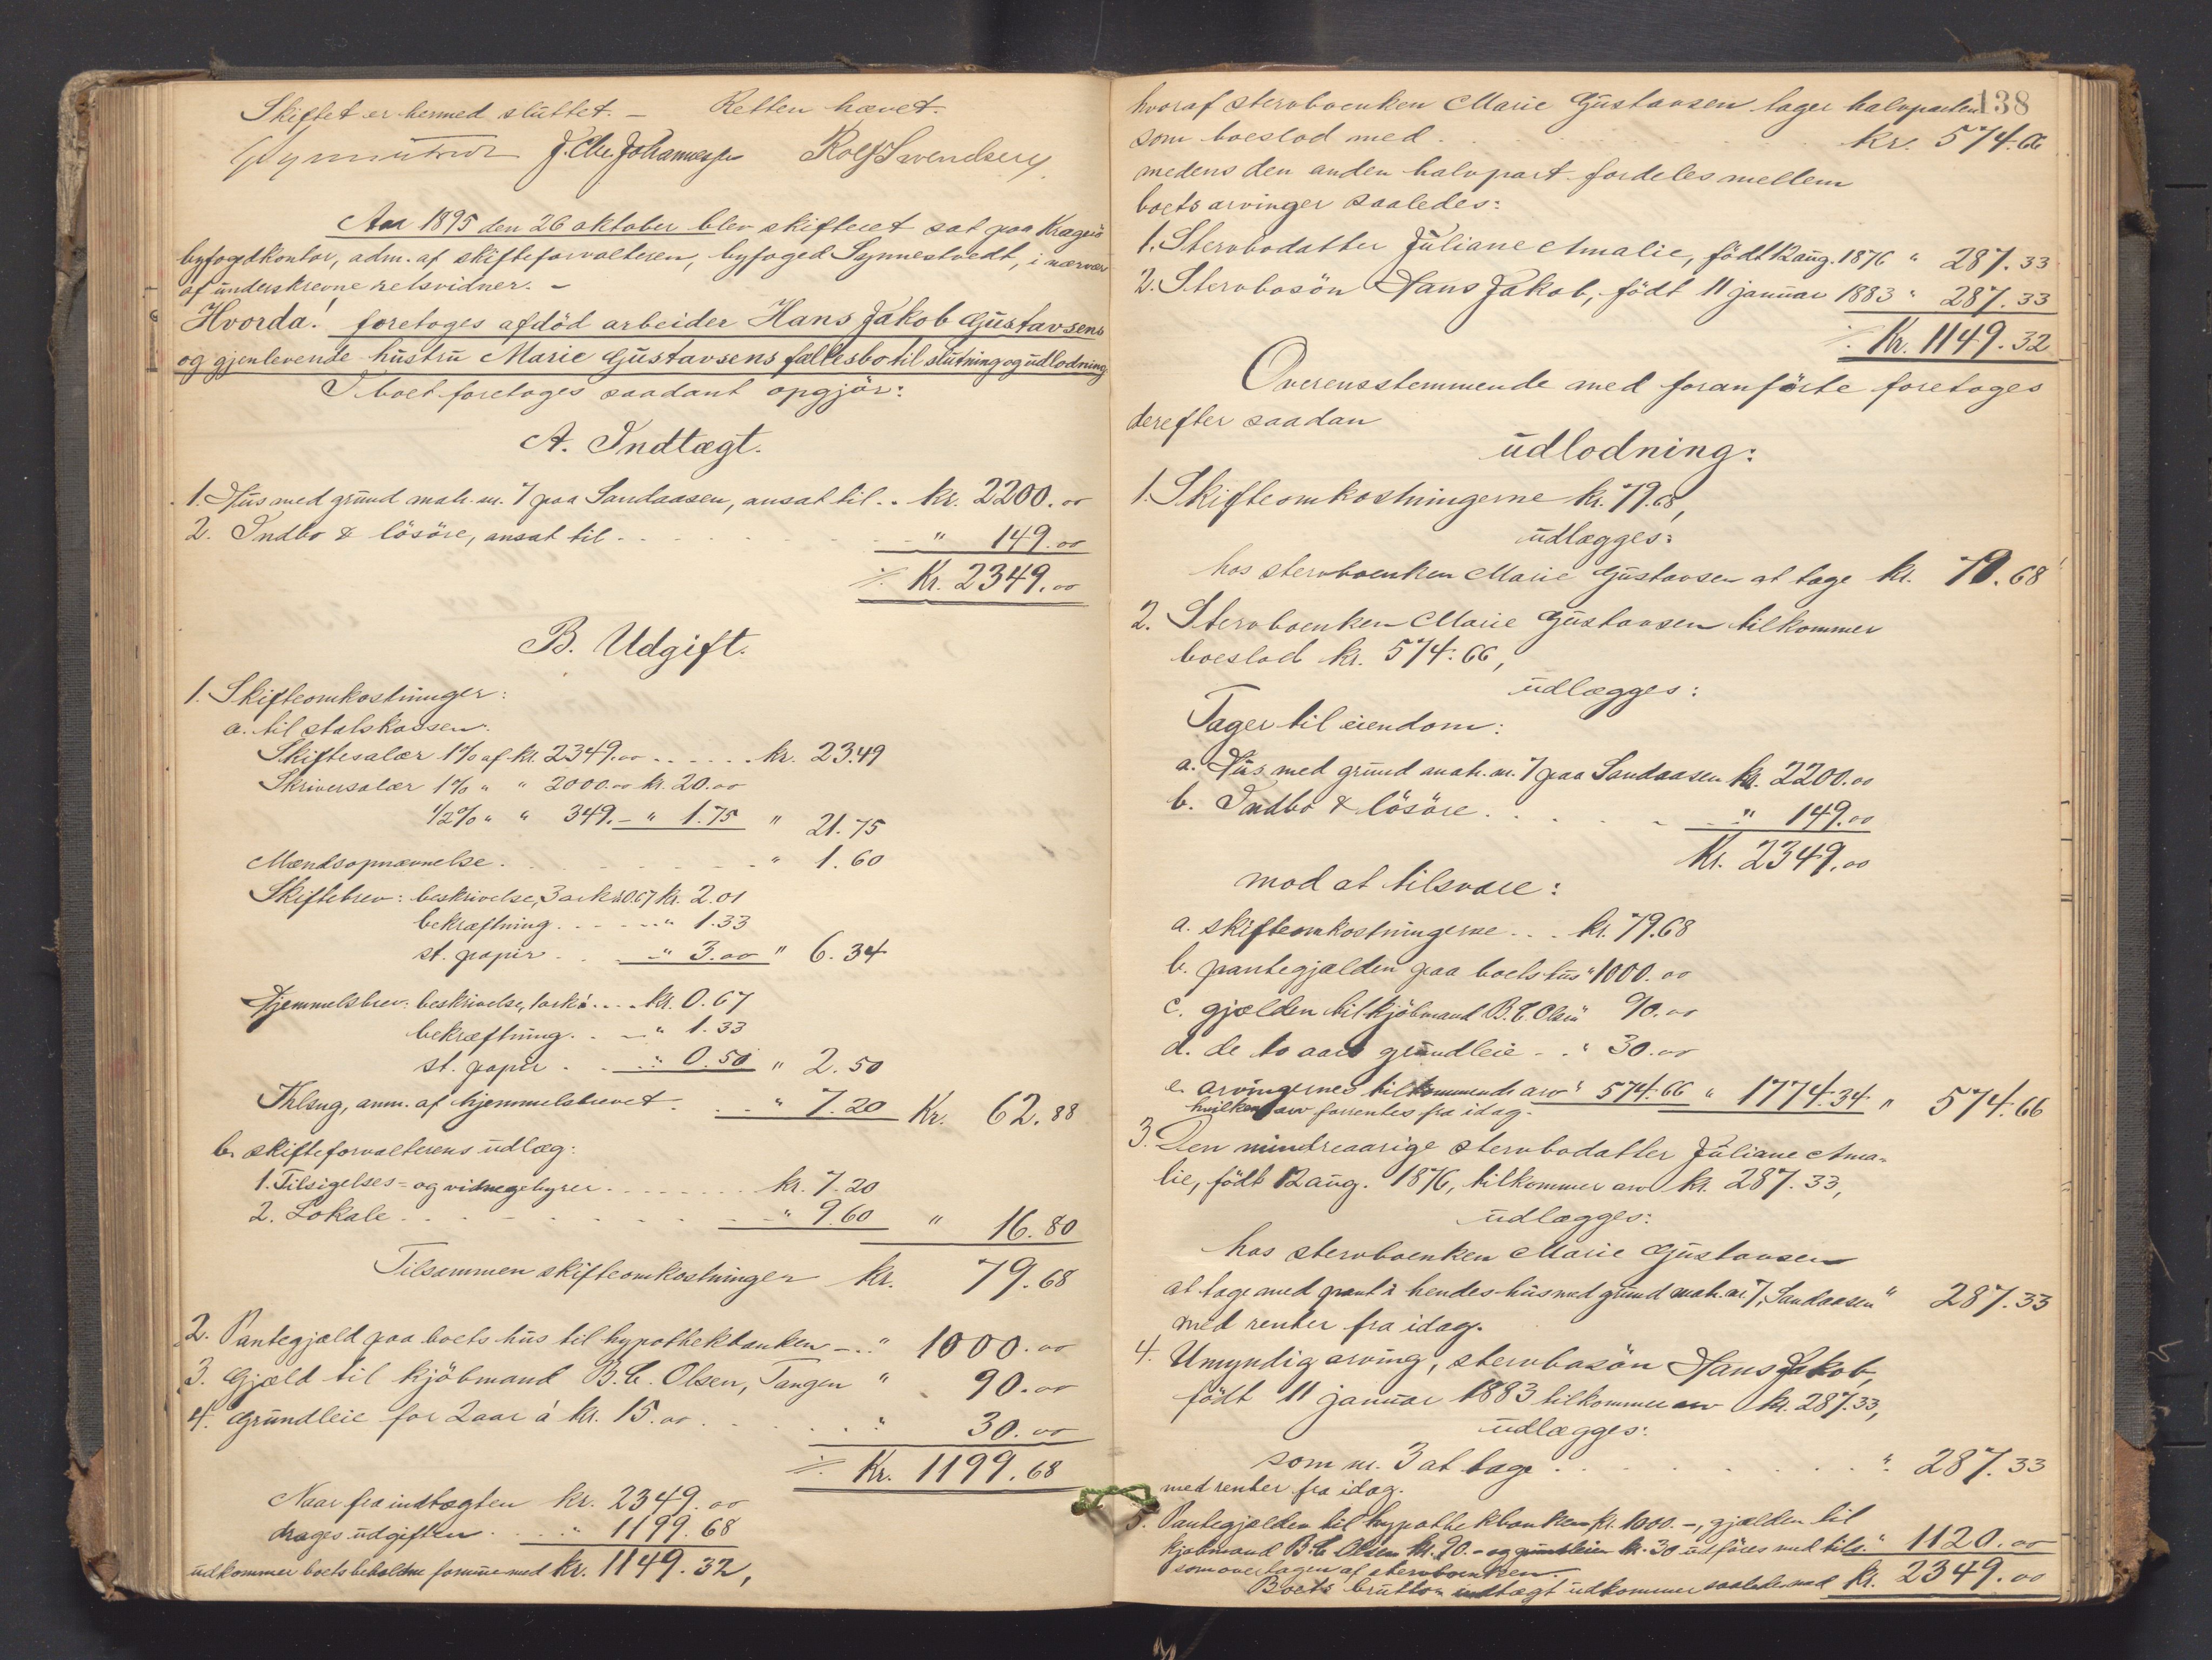 Skiftet er hermed sluttet. – Retten hævet.
J. Chr. Johannesen Rolf Svendsen
Aar 1895 den 26 oktober blev skifteret sat paa Kragerö
byfogdkontor, adm. af skifteforvalteren, byfoged Synnestvedt, i nærvær
af underskrevne retsvidner. –
Hvorda! foretoges afdöd arbeider Hans Jakob Gustavsens
og gjenlevende hustru Marie Gustavsens fællesbo til slutning og udlodning
I boet foretoges saadant opgjör:
A. Indtægt.
1. Hus med grund matr. nr. 7 paa Sandaasen, ansat til .. kr. 2200.00
2. Indbo & lösöre, ansat til . . . . " 149.00
./. Kr. 2349.00
B. Udgift.
1. Skifteomkostninger:
a. til statskassen.
Skiftesalær 1% af kr. 2349.00 . . . . . . kr. 23.49
Skriversalær 1% " " 2000.00 kr. 20.00
1/2% " " 349.– " 1.75 " 21.75
Mændsopnævnelse . . . . " 1.60
Skiftebrev: beskrivelse, 3 ark à 0.67 kr. 2.01
bekræftning . . . . " 1.33
st. papir . . " 3.00 " 6.34
Hjemmelsbrev: beskrivelse, 1 ark à . . . . kr. 0.67
bekræftning . . " 1.33
st. papir . . " 0.50 " 2.50
Thlsng, anm. af hjemmelsbrevet . . . " 7.20 Kr. 62.88
b. skifteforvalterens udlæg:
1. Tilsigelses- og vidnegebyrer . . . . . . . kr. 7.20
2. Lokale . . . . . . " 9.60 " 16.80
Tilsammen skifteomkostninger kr. 79.68
2. Pantegjæld paa boets hus til hypothekbanken – .. " 1000.00
3. Gjæld til kjöbmand B. C. Olsen, Tangen " 90.00
4. Grundleie for 2 aar á kr. 15.00 . . . " 30.00
./. Kr. 1199.68
Naar fra indtægten kr. 2349.00
drages udgiften . . . . " 1199.68
udkommer boets beholdne formue med kr. 1149.32,
138
hvoraf stervboenken Marie Gustavsen tager halvparten
som boeslod med . . . . kr. 574.66
medens den anden halvpart fordeles mellem
boets arvinger saaledes:
1. Stervbodatter Juliane Amalie, födt 12 aug. 1876 " 287.33
2. Stervbosön Hans Jakob, födt 11 januar 1883 " 287.33
./. Kr. 1149.32
Overensstemmende med foranförte foretoges
derefter saadan
udlodning:
1. Skifteomkostningerne kr. 79.68,
udlægges:
hos stervboenken Marie Gustavsen at tage kr. 79.68
2. Stervboenken Marie Gustavsen tilkommer
boeslod kr. 574.66,
udlægges:
Tager til eiendom:
a. Hus med grund matr. nr. 7 paa Sandaasen kr. 2200.00
b. Indbo & lösöre . . . . " 149.00
Kr. 2349.00
mod at tilsvare:
a. skifteomkostningerne . . . kr. 79.68
b. pantegjælden paa boets hus " 1000.00
c. gjælden til kjöbmand B. C. Olsen " 90.00
d. de to aars grundleie . . " 30.00
e. arvingernes tilkommende arv " 574.66 " 1774.34 " 574.66
hvilken arv forrentes fra idag.
3. Den mindreaarige stervbodatter Juliane Ama-
lie, födt 12 aug. 1876, tilkommer arv kr. 287.33,
udlægges:
hos stervboenken Marie Gustavsen
at tage med pant i hendes hus med grund matr. nr. 7, Sandaasen " 287.33
med renter fra idag.
4. Umyndig arving, stervbosön Hans Jakob,
födt 11 januar 1883 tilkommer arv kr. 287.33,
udlægges:
som nr. 3 at tage . . . . " 287.33
med renter fra idag.
5. Pantegjælden til hypothekbanken kr. 1000.–, gjælden til
kjöbmand B. C. Olsen kr. 90.– og grundleien kr. 30 udföres med tils. " 1120.00
som overtagen af stervboenken.
Boets brutto indtægt udkommer saaledes med kr. 2349.00